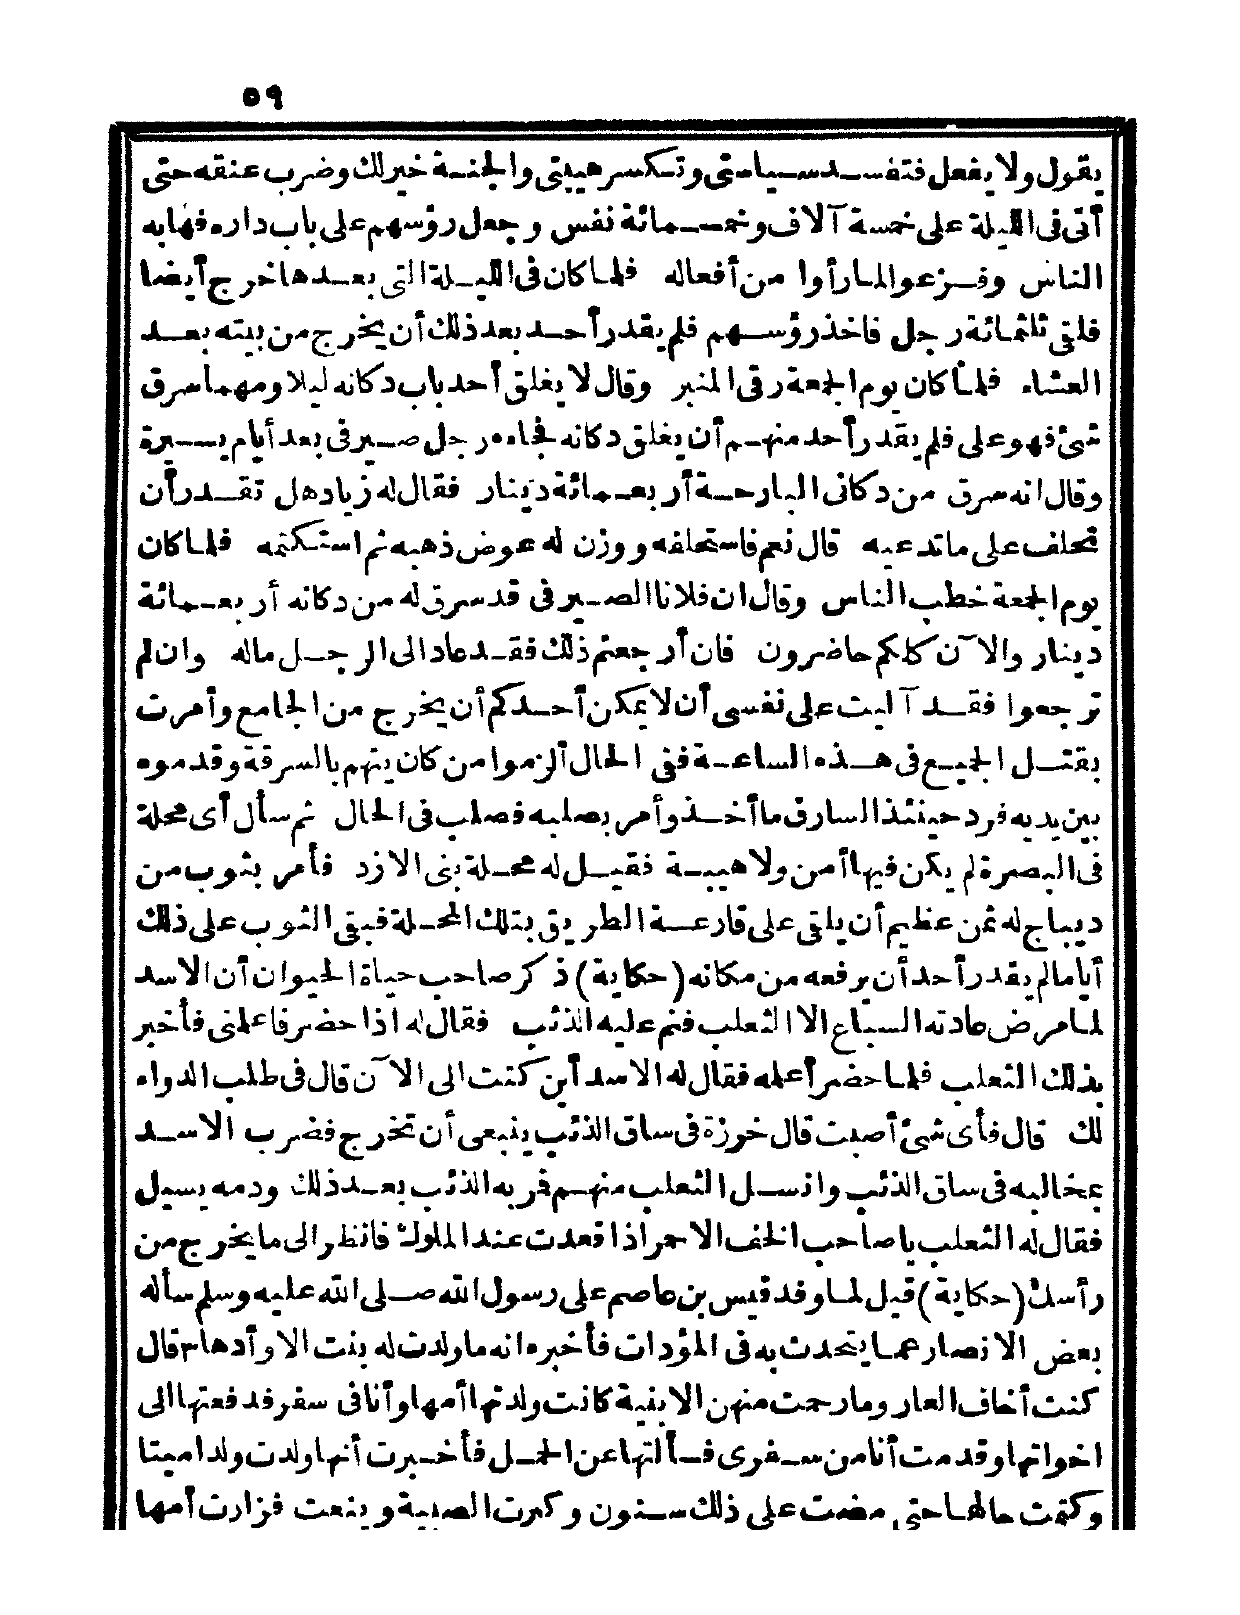 ٥٩
يقول ولا يفعل فتفسد سياستى وتكسر هيبتى والجنة خير لك وضرب عنقه حتى
أتى فى الليلة على خمسة آلاف وخمسمائة نفس وجعل رؤسهم على باب داره فهابه
الناس وفزعوا لما رأوا من أفعاله فلما كان فى الليلة التى بعدها خرج أيضا
فلقى ثلثمائة رجل فاخذ رؤسهم فلم يقدر أحد بعد ذلك أن يخرج من بيته بعد
العشاء فلما كان يوم الجمعة رقى المنبر وقال لا يغلق أحد باب دكانه ليلا ومهما سرق
شئ فهو على فلم يقدر أحد منهم أن يغلق دكانه فجاءه رجل صيرفى بعد أيام يسيرة
وقال انه سرق من دكانى البارحة أربعمائة دينار فقال له زياد هل تقدر أن
تحلف على ما تدعيه قال نعم فاستحلفه ووزن له عوض ذهبه ثم استكتمه فلما كان
يوم الجمعة خطب الناس وقال ان فلانا الصيرفى قد سرق له من دكانه أربعمائة
دينار والآن كلكم حاضرون فان أرجعتم ذلك فقد عاد الى الرجل ماله وان لم
ترجعوا فقد آليت على نفسى أن لا يمكن أحدكم أن يخرج من الجامع وأمرت
بقتل الجميع فى هذه الساعة ففى الحال ألزموا من كان يتهم بالسرقة وقدموه
بين يديه فرد حينئذ السارق ما أخذ وأمر بصلبه فصلب فى الحال ثم سأل أى محلة
فى البصرة لم يكن فيها أمن ولا هيبة فقيل له محلة بنى الازد فأمر بثوب من
ديباج له ثمن عظيم أن يلقى على قارعة الطريق بتلك المحلة فبقى الثوب على ذلك
أياما لم يقدر أحد أن يرفعه من مكانه (حكاية) ذكر صاحب حياة الحيوان أن الاسد
لما مرض عادته السباع الا الثعلب فنم عليه الذئب فقال له اذا حضر فاعلمنى فأخبر
بذلك الثعلب فلما حضر أعلمه فقال له الاسد أين كنت الى الآن قال فى طلب الدواء
لك قال فأى شئ أصبت قال خرزة فى ساق الذئب ينبغى أن تخرج فضرب الاسد
بمخالبه فى ساق الذئب وانسل الثعلب منهم فمر به الذئب بعد ذلك ودمه يسيل
فقال له الثعلب يا صاحب الخف الاحمر اذا قعدت عند الملوك فانظر الى ما يخرج من
رأسك (حكاية) قيل لما وفد قيس بن عاصم على رسول الله صلى الله عليه وسلم سأله
بعض الانصار عما يتحدث به فى المؤدات فأخبره انه ما ولدت له بنت الا وأدها ٣ قال
كنت أخاف العار وما رحمت منهن الا بنية كانت ولدتها أمها وأنا فى سفر فدفعتها الى
اخواتها وقدمت أنا من سفرى فسألتها عن الحمل فأخبرت أنها ولدت ولدا ميتا
وكتمت حالها حتى مضت على ذلك سنون وكبرت الصبية وينعت فزارت أمها